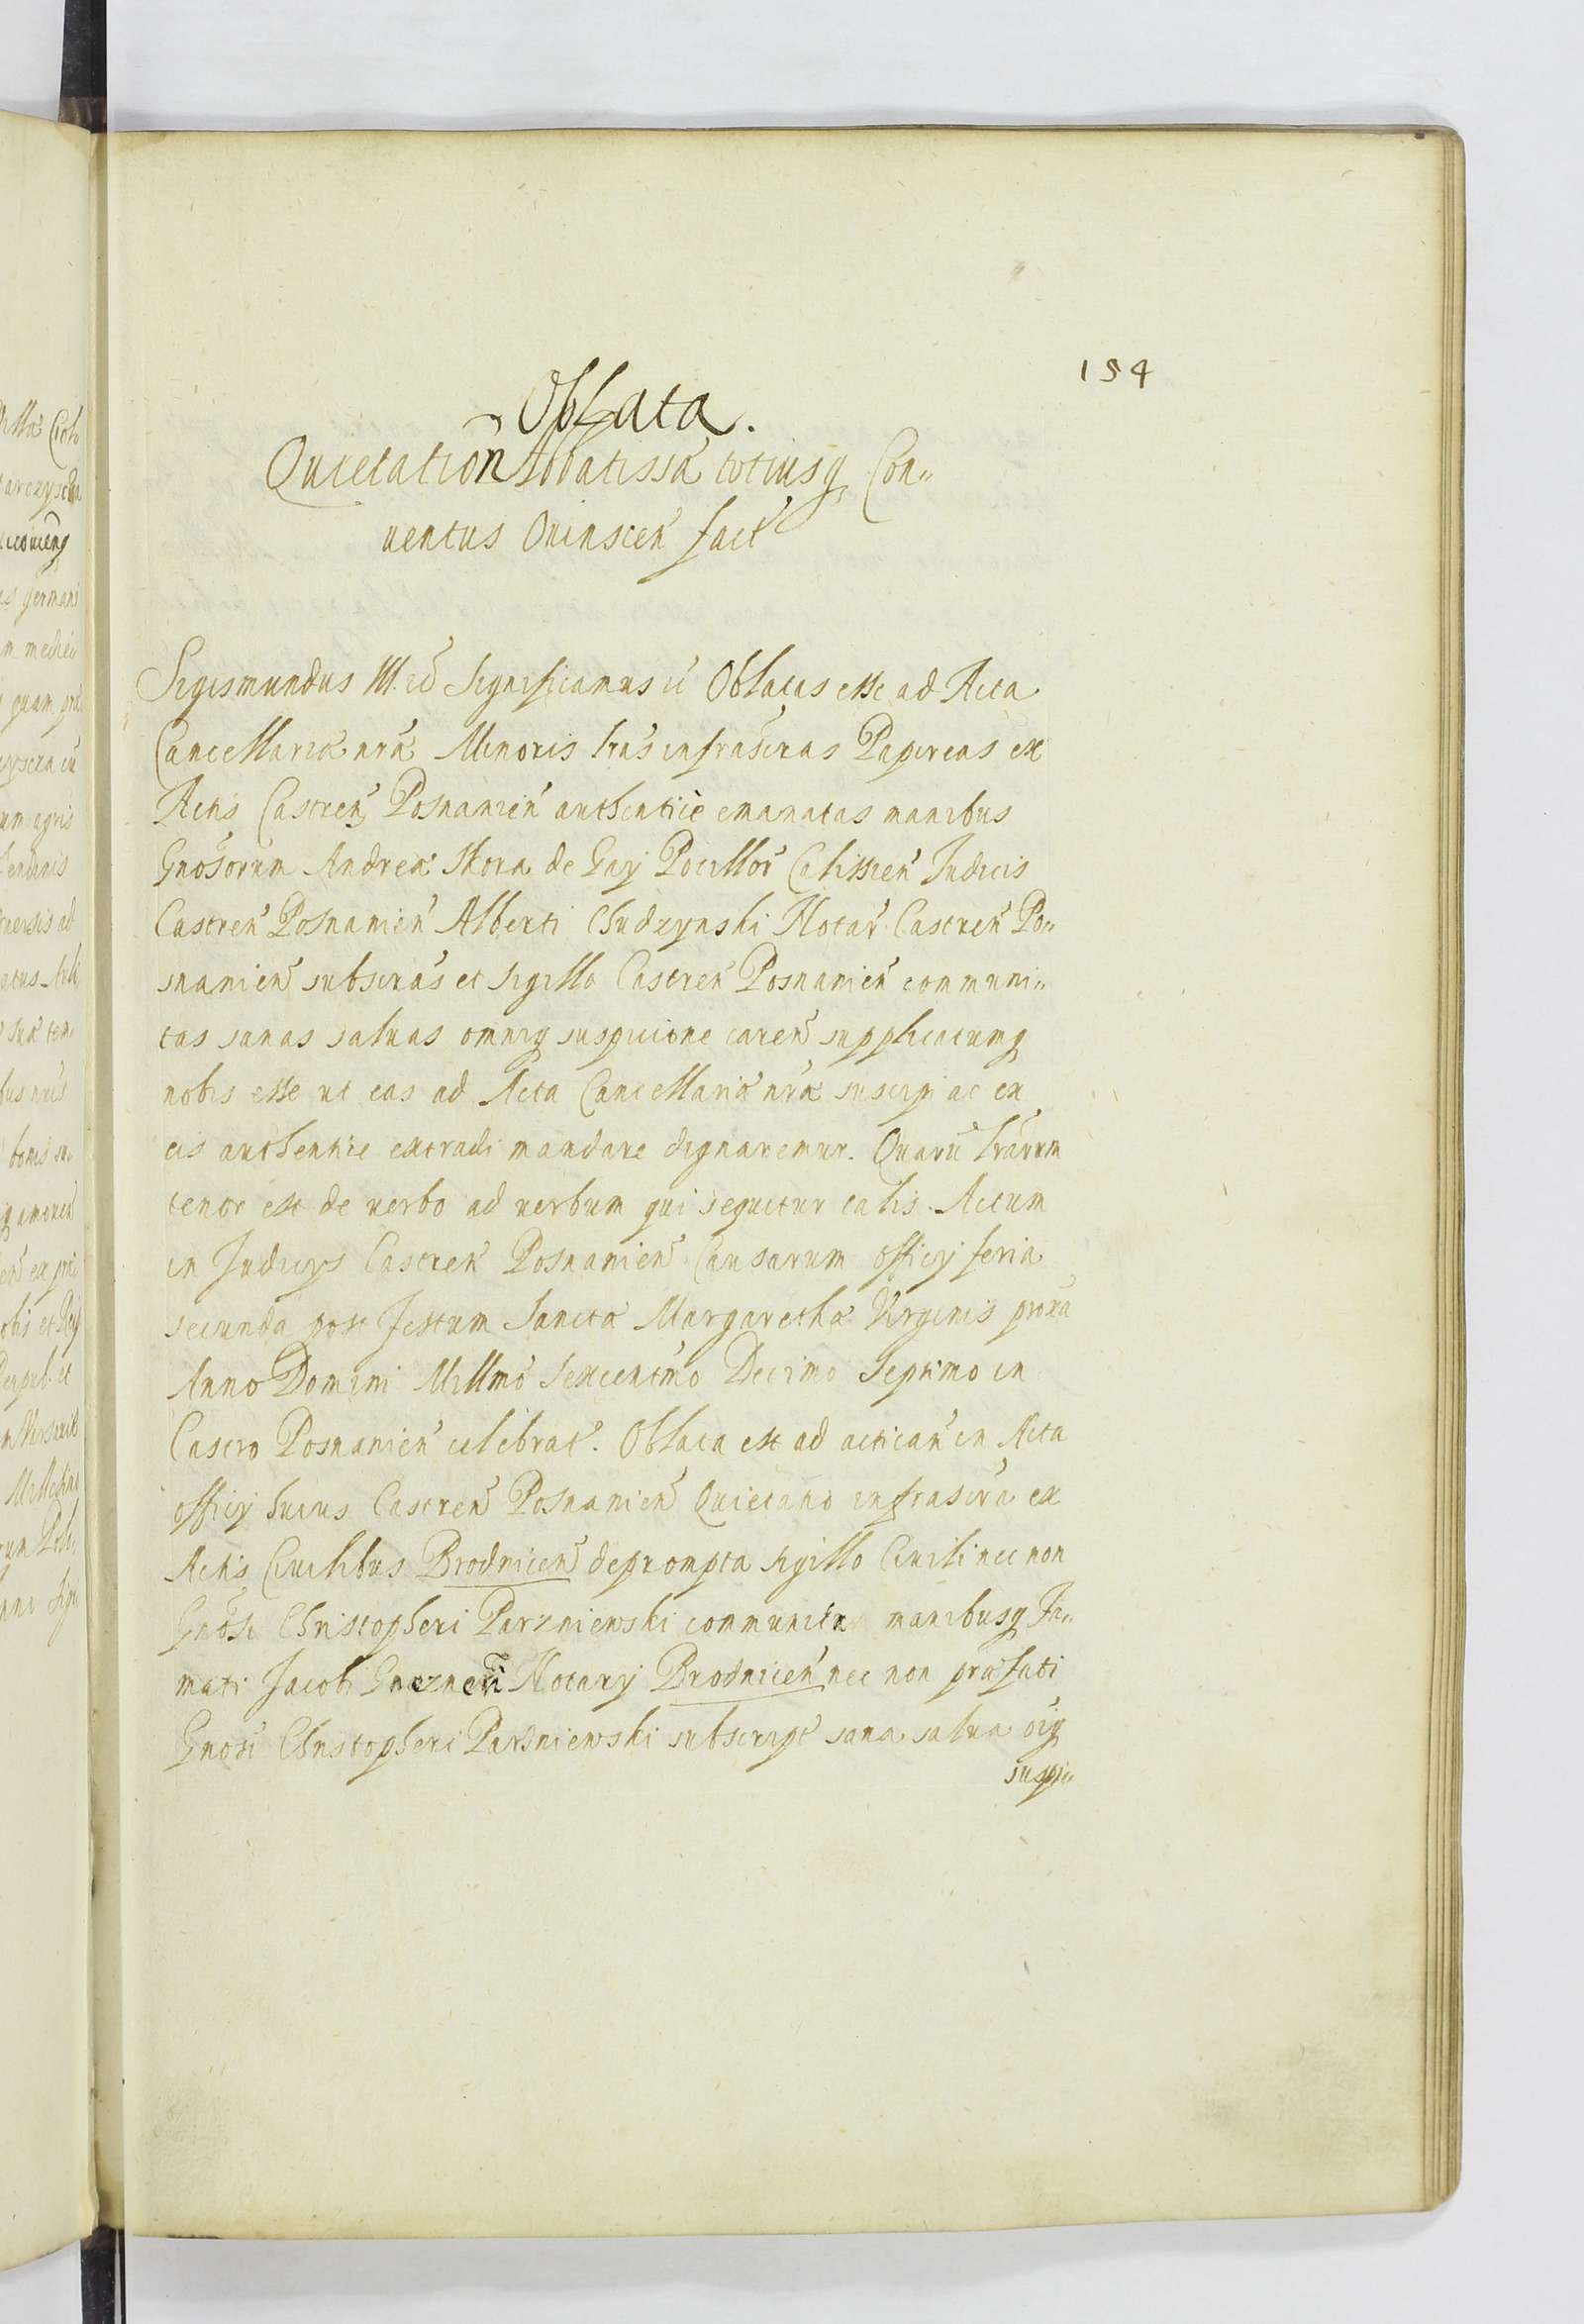 154
Oblata.
Quietation Abbatissæ totiusq Con„
uentus Ouinscen fact
Sigismundus III. etc Significamus etc Oblatas esse ad Acta
Cancellariæ nræ Minoris lras infrascras Papireas ex
Actis Castren Posnanien authentice emanatas manibus
Gnosorum Andreæ Skora de Gay Pocillor Calissien Judicis
Castren Posnanien Alberti Chudzynski Notar Castren Po„
snanien subscras et sigillo Castren Posnanien communi„
tas sanas saluas omniq suspicione caren supplicatumq
nobis esse ut eas ad Acta Cancellariæ nræ suscipi ac ex
eis authentice extradi mandare dignaremur. Quaru lrarum
tenor est de uerbo ad uerbum qui sequitur talis. Actum
in Judicys Castren Posnanien Causarum officij feria
secunda post festum Sanctæ Margarethæ Virginis proxa
Anno Domini Millmo Sexcentmo Decimo Septimo in
Castro Posnanien celebrat. Oblata est ad actican in Acta
officij huius Castren Posnanien Quietatio infrascra ex
Actis Ciuilibus Brodnicen deprompta sigillo Ciuili nec non
Gnosi Christopheri Parzniewski communita manibusq Fa„
mati Jacobi Gnezneri Notarij Brodnicen nec non præfati
Gnosi Christopheri Parzniewski subscript sana salua oiq
suspi„